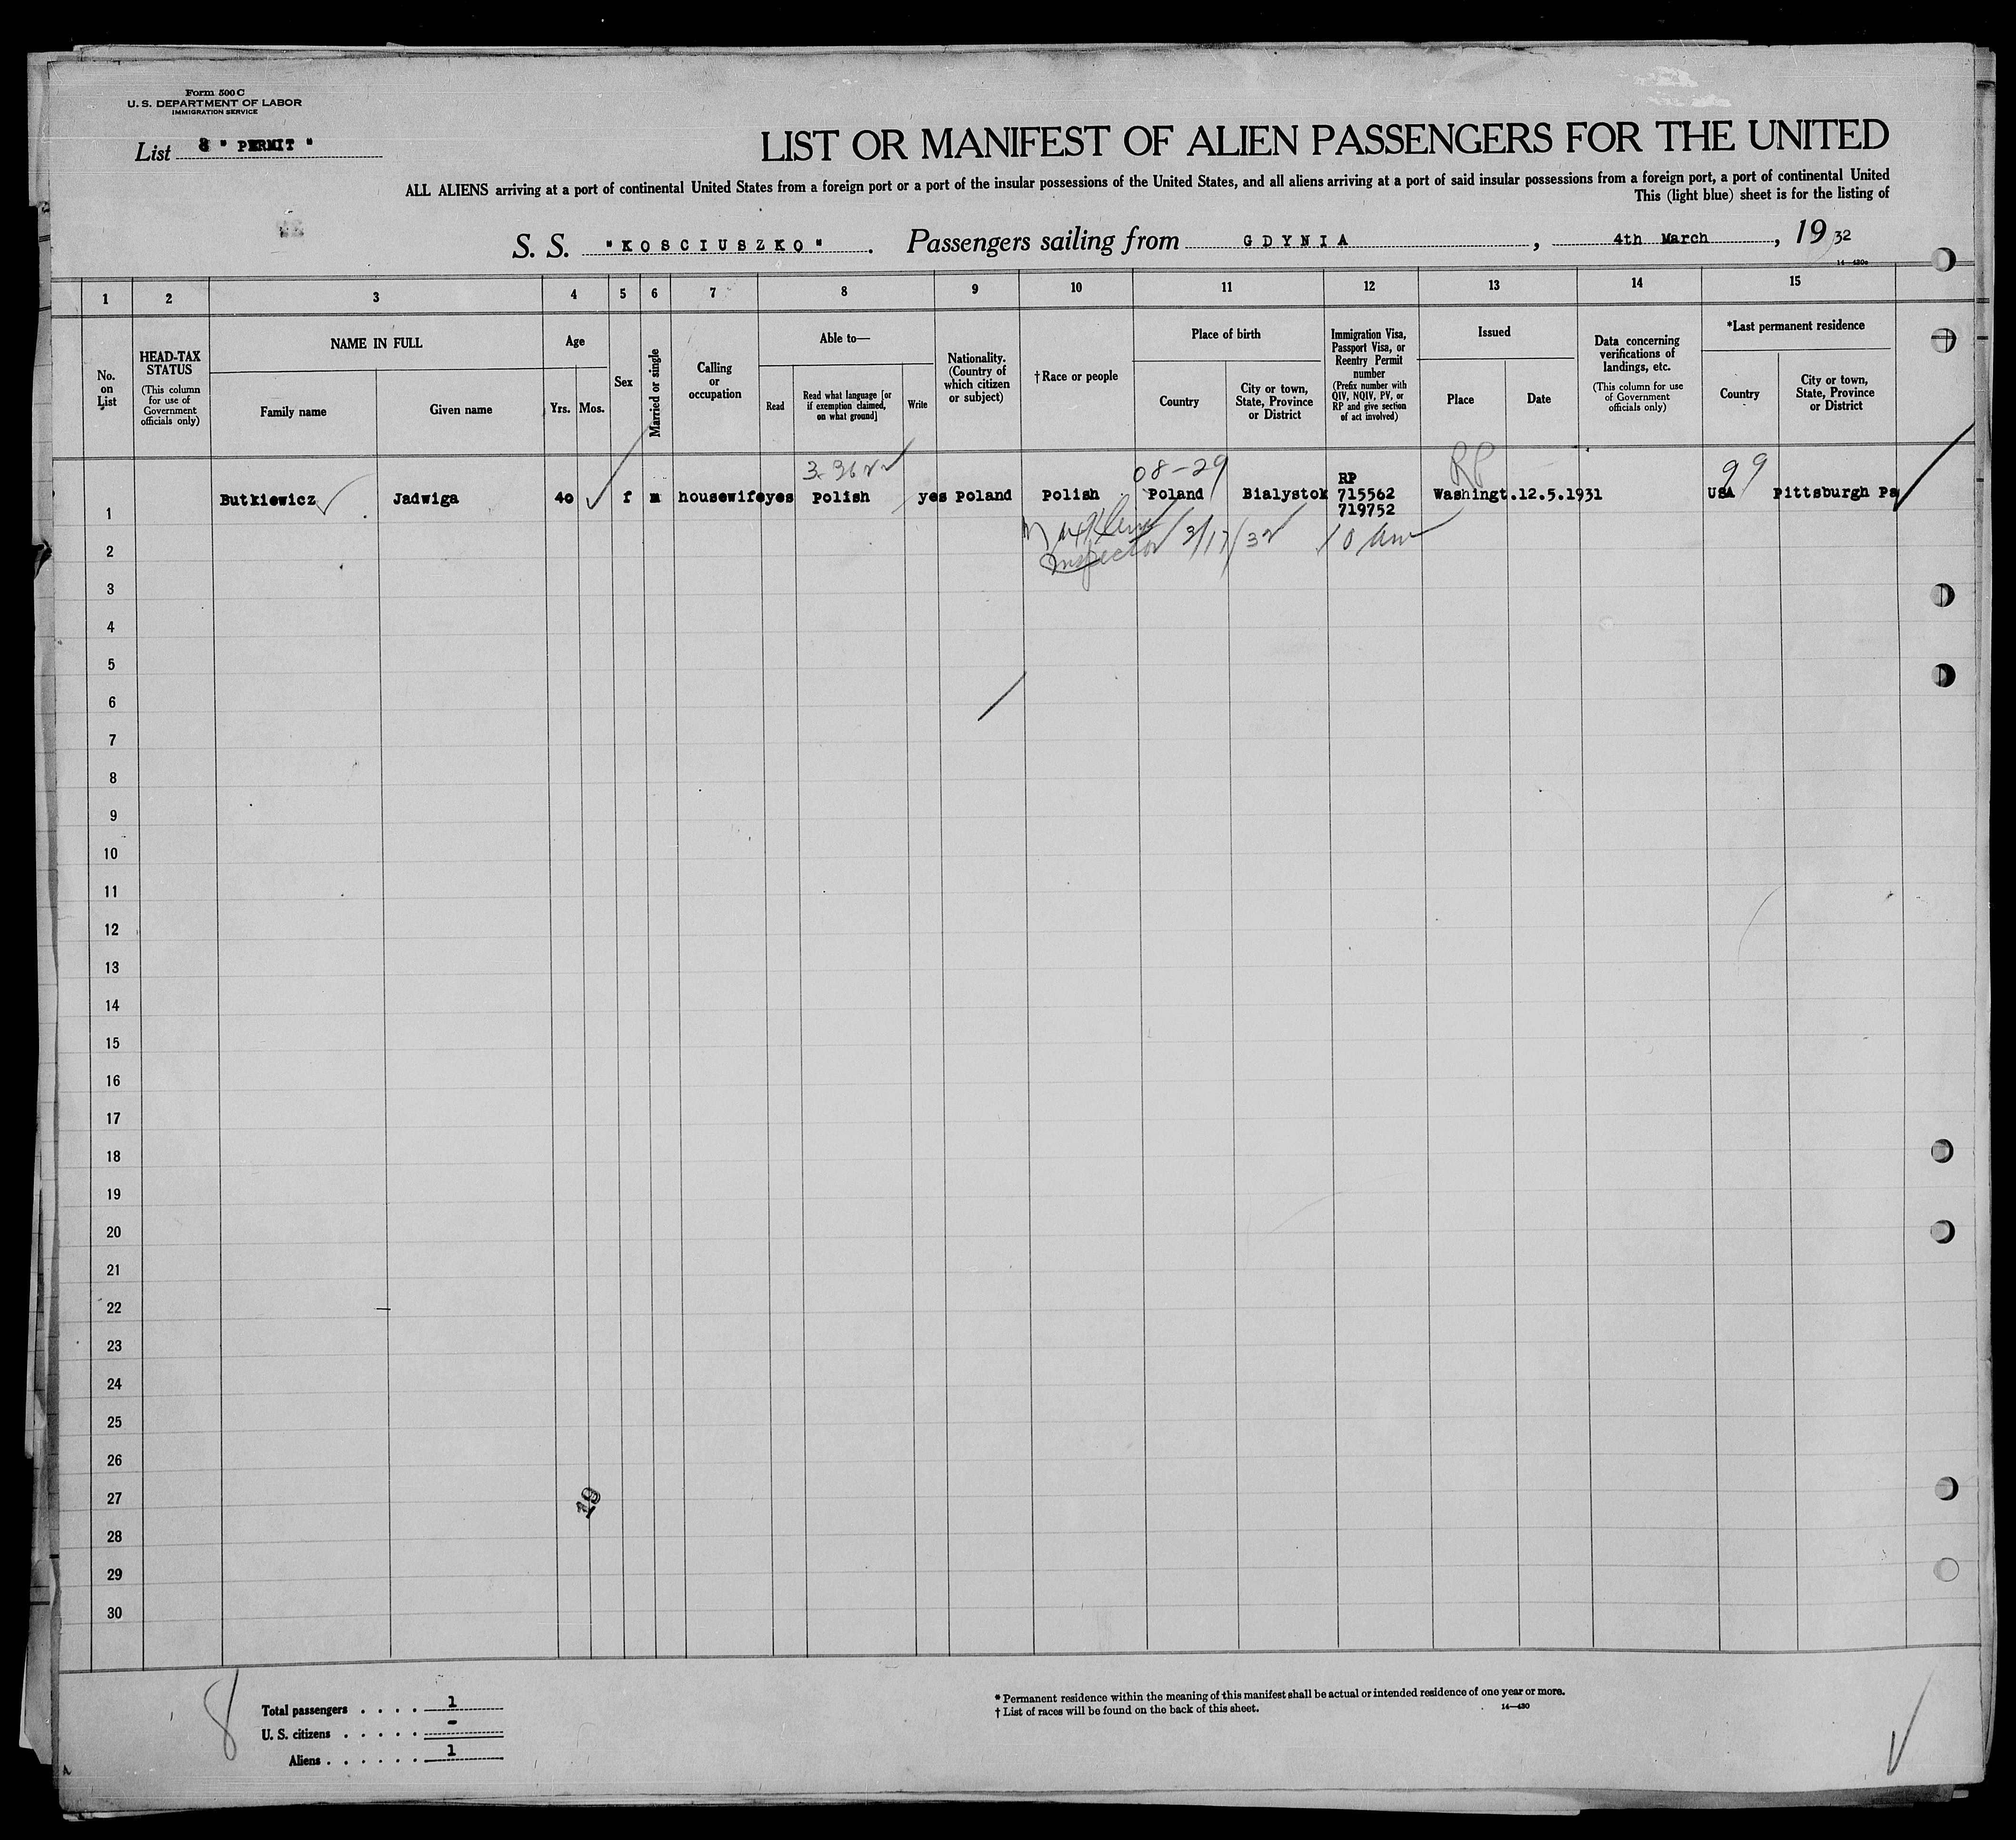 Form 500 C
U. S. DEPARTMENT OF LABOR
IMMIGRATION SERVICE
List 8 " PERMIT "
LIST OR MANIFEST OF ALIEN PASSENGERS FOR THE UNITED
ALL ALIENS arriving at a port of continental United States from a foreign port or a port of the insular possessions of the United States, and all aliens arriving at a port of said insular possessions from a foreign port, a port of continental United
This (light blue) sheet is for the listing of
S. S. "KOSCIUSZKO". Passengers sailing from GDYNIA, 4th March, 1932
14—430c
1 2 3 4 5 6 7 8 9 10 11 12 13 14 15
No. on List
HEAD-TAX STATUS
(This column for use of Government officials only)
NAME IN FULL
Family name
Given name
Age
Yrs. Mos.
Sex
Married or single
Calling or occupation
Able to—
Read
Read what language [or if exemption claimed, on what ground]
Write
Nationality. (Country of which citizen or subject)
†Race or people
Place of birth
Country
City or town, State, Province or District
Immigration Visa, Passport Visa, or Reentry Permit number
(Prefix number with QIV, NQIV, PV, or RP and give section of act involved)
Issued
Place
Date
Data concerning verifications of landings, etc.
(This column for use of Government officials only)
*Last permanent residence
Country
City or town, State, Province or District
08-29 RP 99
RP
1 Butkiewicz Jadwiga 40 f m housewife yes Polish yes Poland Polish Poland Bialystok 715562 Washingt. 12.5.1931 USA Pittsburgh Pa
719752
Inspector 3/17/32 10 am
2
3
4
5
6
7
8
9
10
11
12
13
14
15
16
17
18
19
20
21
22
23
24
25
26
27
28
29
30
19
8
Total passengers . . . . 1
U. S. citizens . . . . . -
Aliens . . . . . . 1
* Permanent residence within the meaning of this manifest shall be actual or intended residence of one year or more.
† List of races will be found on the back of this sheet.
14—430